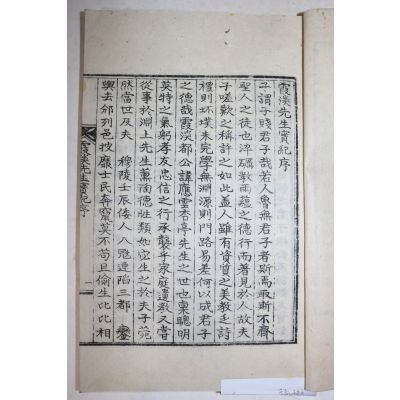 霞溪先生實紀序
子謂子賤君子哉若人魯無君子者斯焉取斯不齊
聖人之徒也淬礪蘊之德行而著見於人故夫
子嗟歎之稱許之如此盖人雖有資質之美教乏詩
禮則坯墣未完學無淵源則門路易差何以成君子
之德哉霞溪都公諱應雲杏亭先生之世也稟聰明
英特之氣躬孝友忠信之行承襲乎家庭遺教又嘗
從事於淵上先生薰陶德性類如宓生之於夫子菀
然當世及夫 穆陵壬辰倭人入寇連陷三都 鑾
輿去邠列邑披靡士民奔竄莫不苟且偷生比比相
霞溪先生實紀序 一